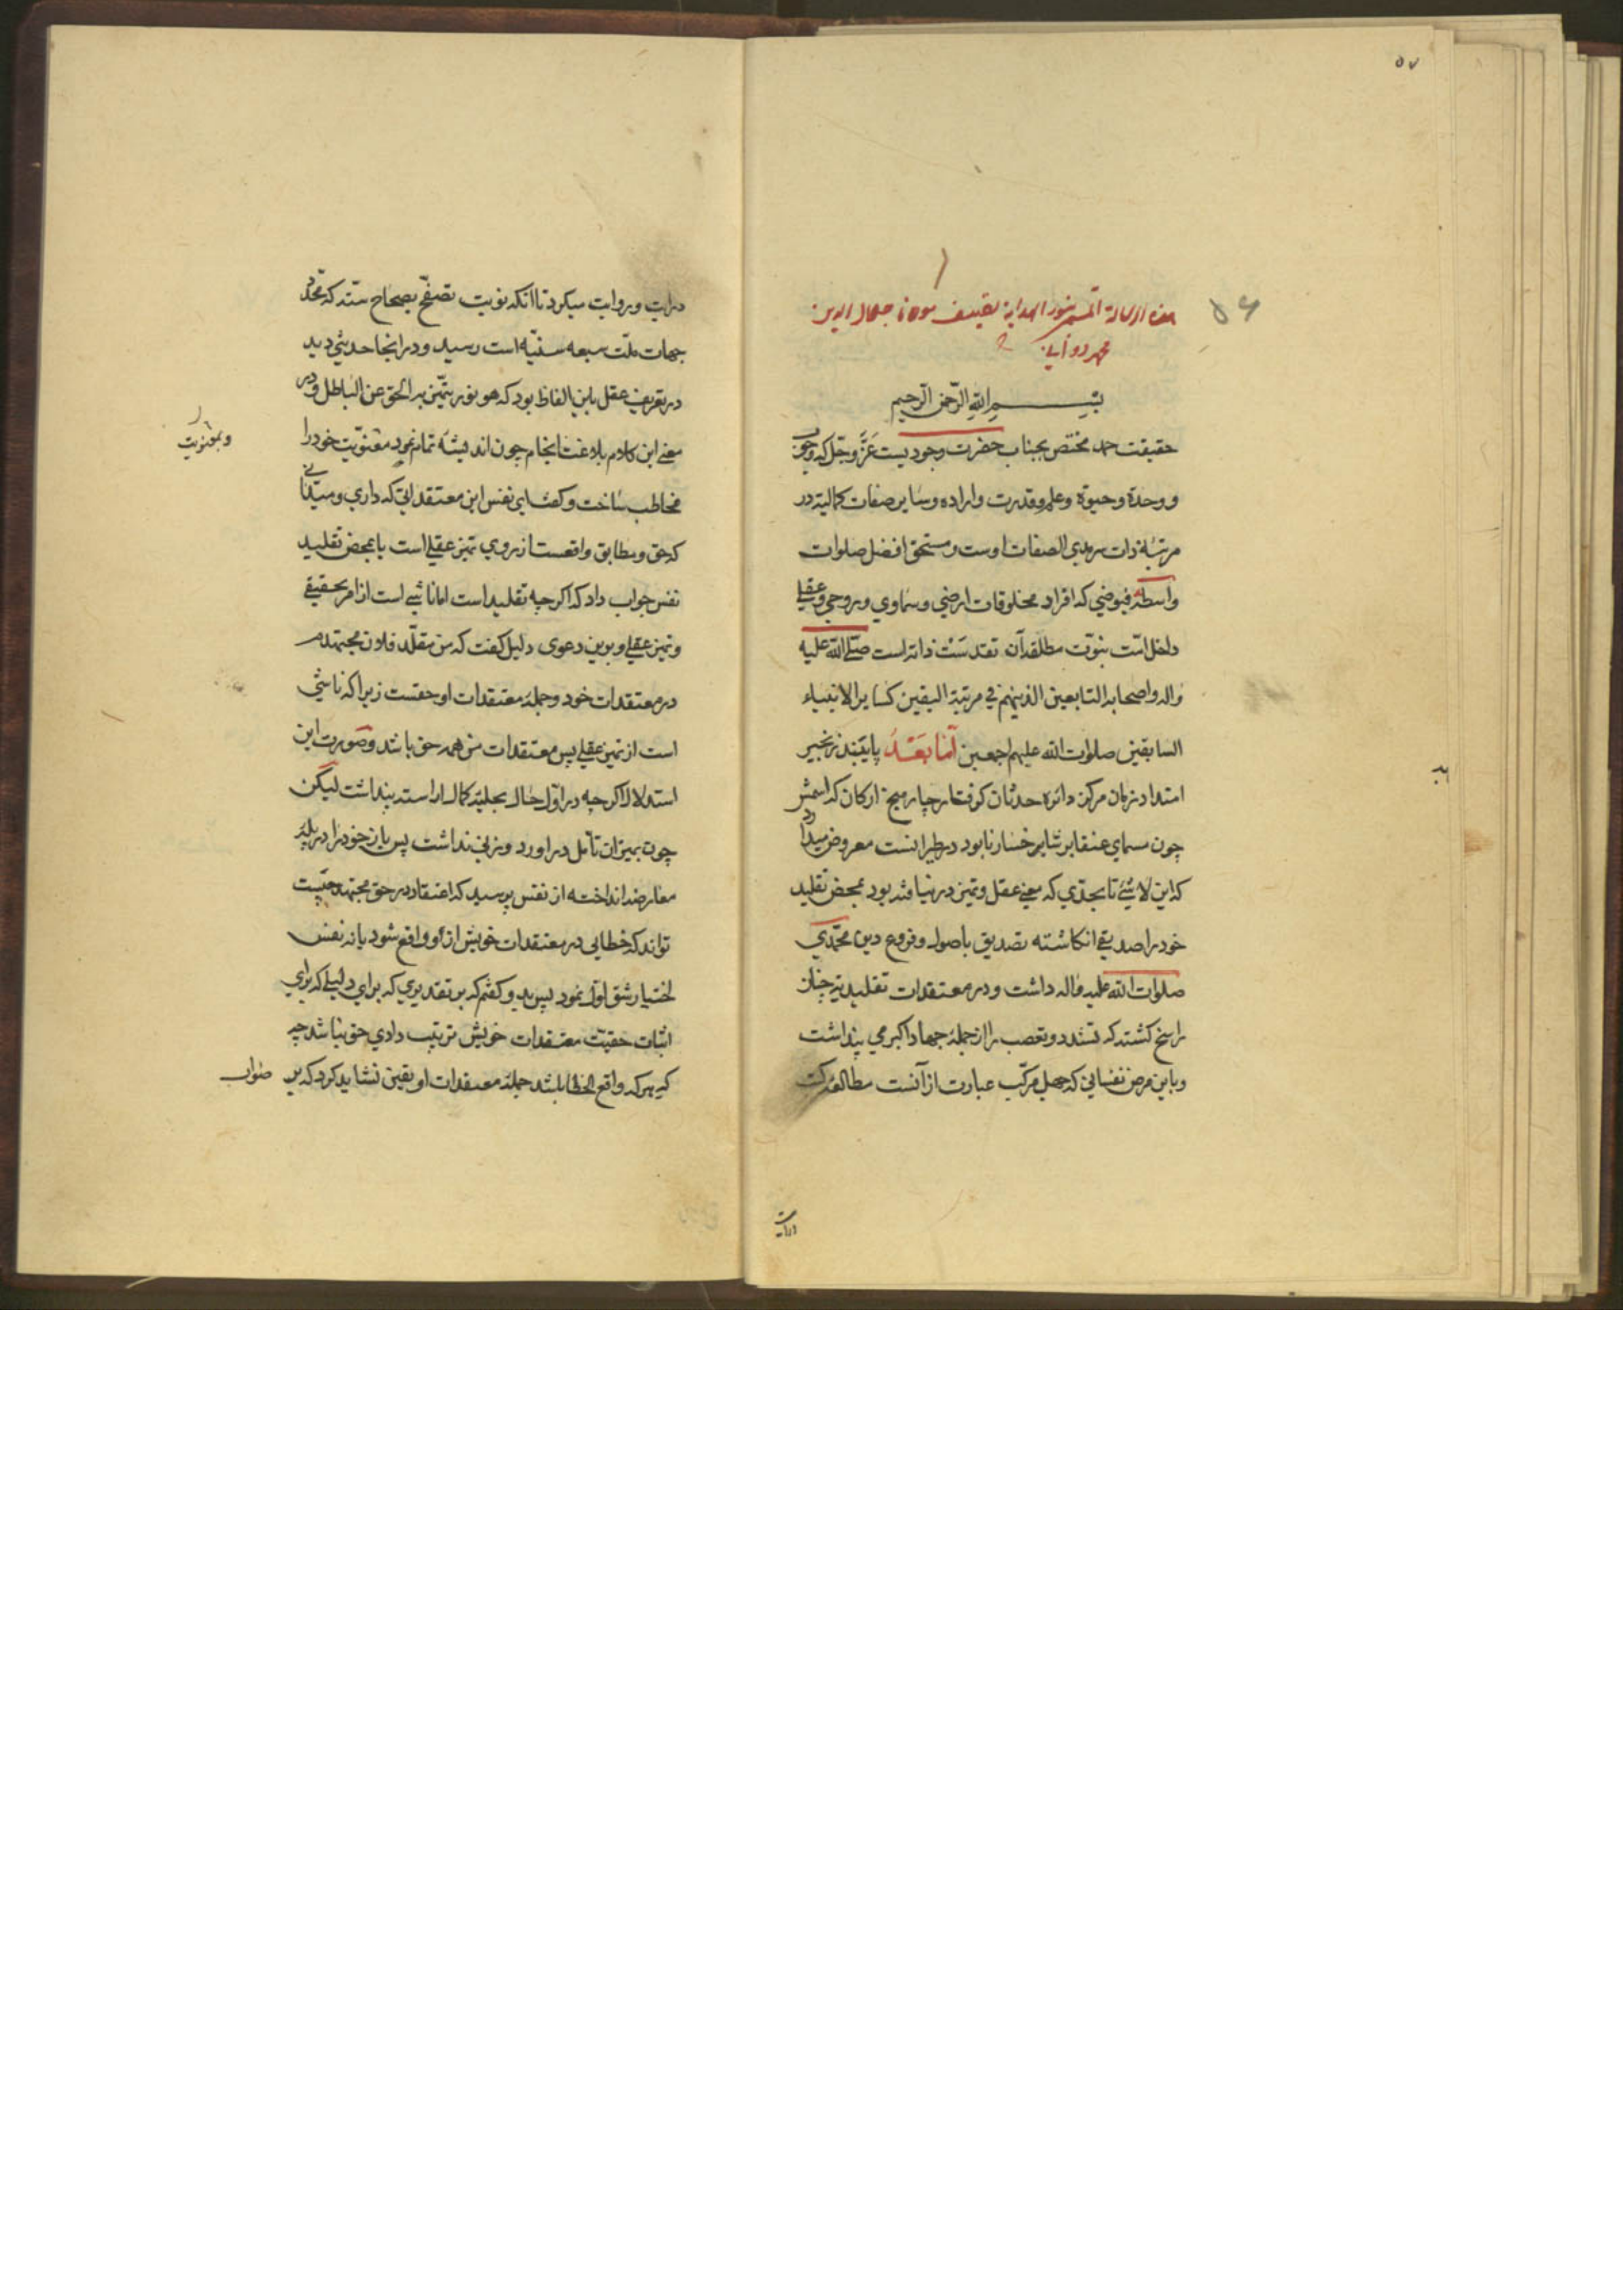 ۵۷
۵۶
هذه الرسالة المسمی بنور الهدایة تصنیف مولانا جلال الدین
محمد دوانی
بسم الله الرحمن الرحیم
حقیقت حمد مختص بجناب حضرت وجودیست عزّ وجلّ که وجوب
و وحدة و حیوة و علم و قدرت و اراده و سایر صفات کمالیة در
مرتبهٔ ذات سرمدی الصفات اوست و مستحق افضل صلوات
واسطهٔ فیوضی که افراد مخلوقات ارضی و سماوی و روحی و عقلی
داخل امّت نبوّت مطلقهٔ آن تقدست ذاته است صلّی الله علیه
واله واصحابه التابعین الذینهم فی مرتبة الیقین کسایر الانبیاء
السابقین صلوات الله علیهم اجمعین امّا بعد پایبند زنجیر
امتداد زمان مرکز دائره حدثان کرفتار چار میخ ارکان که اسمش
چون مسمای عنقا بر شاپر خسار نابود در طیرانست معروض میدارد
که این لاشیٔ تا بحدّی که معنی عقل و تمیز در نیافته بود بمحض تقلید
خود را صدیقی انکاشته تصدیق باصول و فروع دین محمّدی
صلوات الله علیه واله داشت و در معتقدات تقلیدیه چنان
راسخ کشته که تشدد و تعصب را از جملهٔ جهاد اکبر می پنداشت
و باین مرض نفسانی که جهل مرکّب عبارت از آنست مطالعهٔ کتب
درایت و روایت میکرد تا آنکه نوبت تصفّح بصحاح ستّه که محدّد
جهات ملّت سبعه سنیّه است رسید و در انجا حدیثی دید
در تعریف عقل باین الفاظ بود که هو نور یتمیّز به الحق عن الباطل و در
معنی این کلام بلاغت انجام چون اندیشه تمام نمود معنویّت خود را
وبمعنویت
مخاطب ساخت و کفت ای نفس این معتقداتی که داری و میدانی
که حق و مطابق واقعست از روی تمیز عقلی است یا بمحض تقلید
نفس جواب داد که اکرچه تقلید است اما ناشی است از امر حقیقی
و تمیز عقلی و برین دعوی دلیل کفت که من مقلّد فلان مجتهدم
در معتقدات خود و جملهٔ معتقدات او حقست زیرا که ناشی
است از تمیز عقلی پس معتقدات من همه حق باشد و صورت این
استدلال اکرچه در اوّل حال بحلیهٔ کمال اراسته پنداشت لیکن
چون بمیزان تامّل در اورد وزنی نداشت پس بار خود را در پلهٔ
معارضه انداخته از نفس پرسید که اعتقاد در حق مجتهد چیست
تواند که خطایی در معتقدات خویش از او واقع شود یا نه نفس
اختیار شق اوّل نمود پس بدو کفتم که بر تقدیری که برای دلیلی که برای
اثبات حقیّت معتقدات خویش ترتیب دادی حق نباشد چه
که هر که واقع الخطا باشد جملهٔ معتقدات او یقین نشاید کرد که بر
صواب